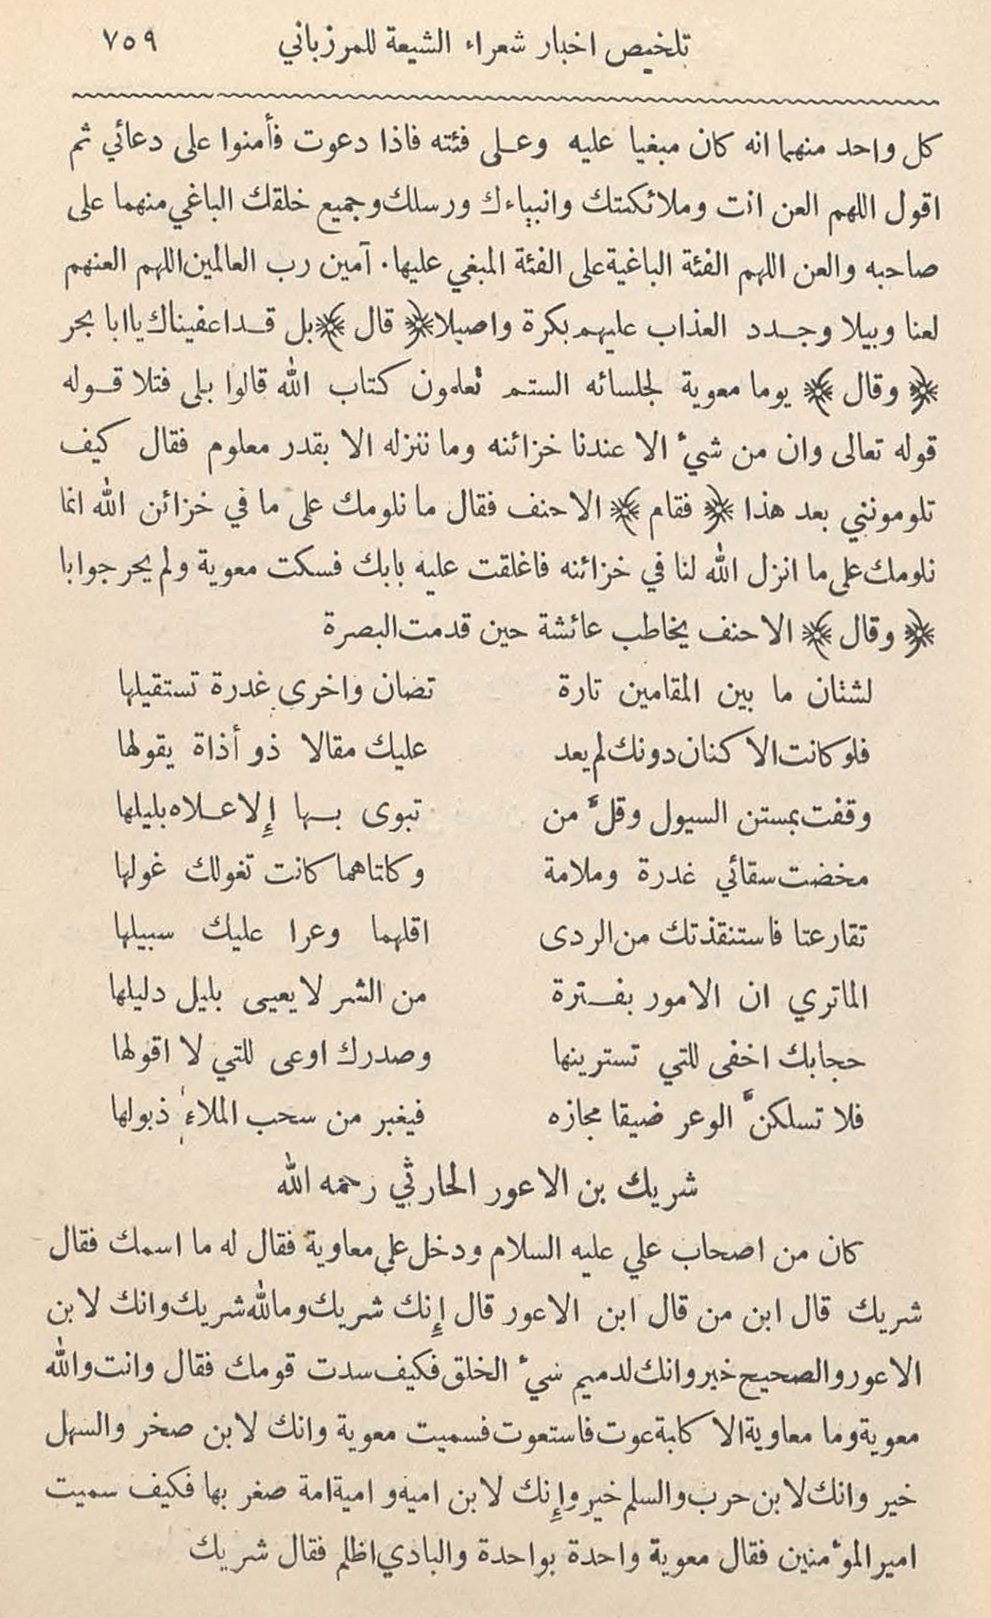 تلخيص اخبار شعراء الشيعة للمرزباني ٧٥٩
كل واحد منهما انه كان مبغيا عليه وعلى فئته فاذا دعوت فأمنوا على دعائي ثم
اقول اللهم العن انت وملائكتك وانبياءك ورسلك وجميع خلقك الباغي منهما على
صاحبه والعن اللهم الفئة الباغية على الفئة المبغي عليها. آمين رب العالمين اللهم العنهم
لعنا وبيلا وجدد العذاب عليهم بكرة واصيلا ﴿ قال ﴾ بل قد اعفيناك يا ابا بحر
﴿ وقال ﴾ يوما معوية لجلسائه الستم تعلمون كتاب الله قالوا بلى فتلا قوله
قوله تعالى وان من شيء الا عندنا خزائنه وما ننزله الا بقدر معلوم فقال كيف
تلومونني بعد هذا ﴿ فقام ﴾ الاحنف فقال ما نلومك على ما في خزائن الله انما
نلومك على ما انزل الله لنا في خزائنه فاغلقت عليه بابك فسكت معوية ولم يحر جوابا
﴿ وقال ﴾ الاحنف يخاطب عائشة حين قدمت البصرة
لشتان ما بين المقامين تارة تضان واخرى غدرة تستقيلها
فلو كانت الاكنان دونك لم يعد عليك مقالا ذو أذاة يقولها
وقفت بمستن السيول وقلّ من تبوى بها إلا علاه بليلها
مخضت سقائي غدرة وملامة وكاتاهما كانت تغولك غولها
تقارعتا فاستنقذتك من الردى اقلهما وعرا عليك سبيلها
الماتري ان الامور بفترة من الشر لا يعيى بليل دليلها
حجابك اخفى للتي تسترينها وصدرك اوعى للتي لا اقولها
فلا تسلكنّ الوعر ضيقا مجازه فيغبر من سحب الملاء ذبولها
شريك بن الاعور الحارثي رحمه الله
كان من اصحاب علي عليه السلام ودخل على معاوية فقال له ما اسمك فقال
شريك قال ابن من قال ابن الاعور قال إنك شريك ومالله شريك وانك لابن
الاعور والصحيح خير وانك لدميم سيء الخلق فكيف سدت قومك فقال وانت والله
معوية وما معاوية الا كابة عوت فاستعوت فسميت معوية وانك لابن صخر والسهل
خير وانك لابن حرب والسلم خير وإنك لابن اميه و امية امة صغر بها فكيف سميت
امير المؤمنين فقال معوية واحدة بواحدة والبادي اظلم فقال شريك